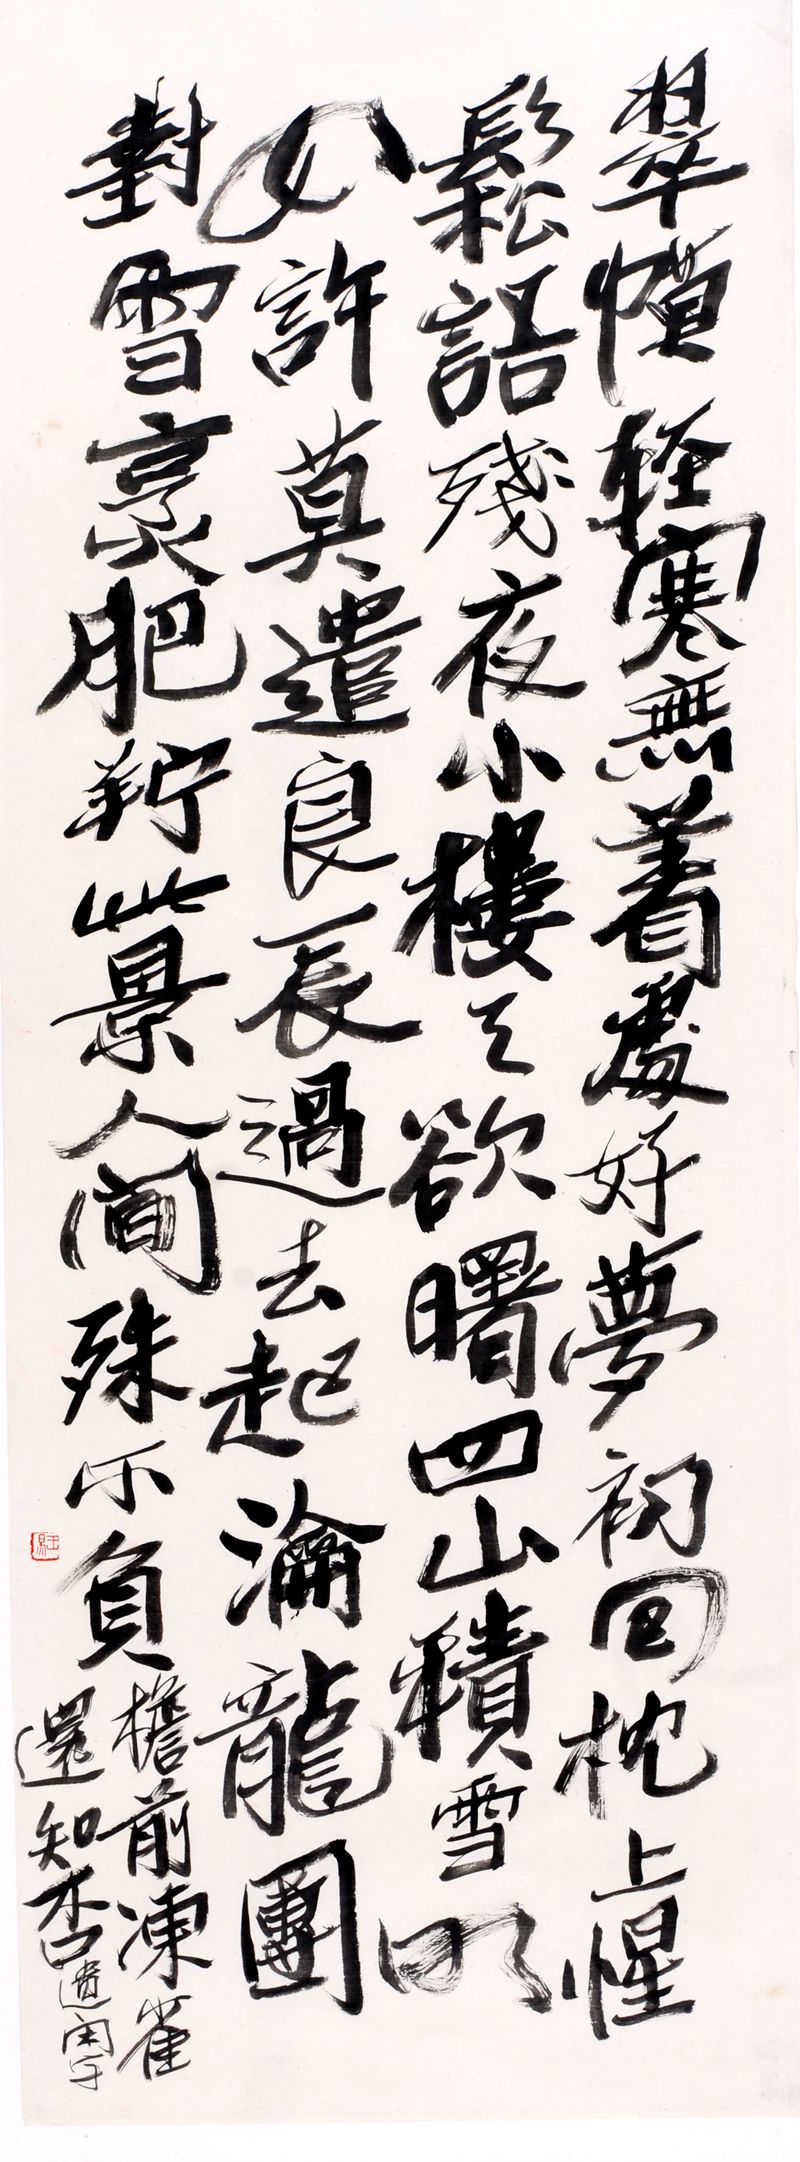 翠幰轻寒無著處好夢初回枕上惺
鬆語殘夜小樓天欲曙四山積雪明
如許莫遣良辰過去起瀹龍團
對雪烹肥羜此景人間殊不負
檐前凍雀
還知否